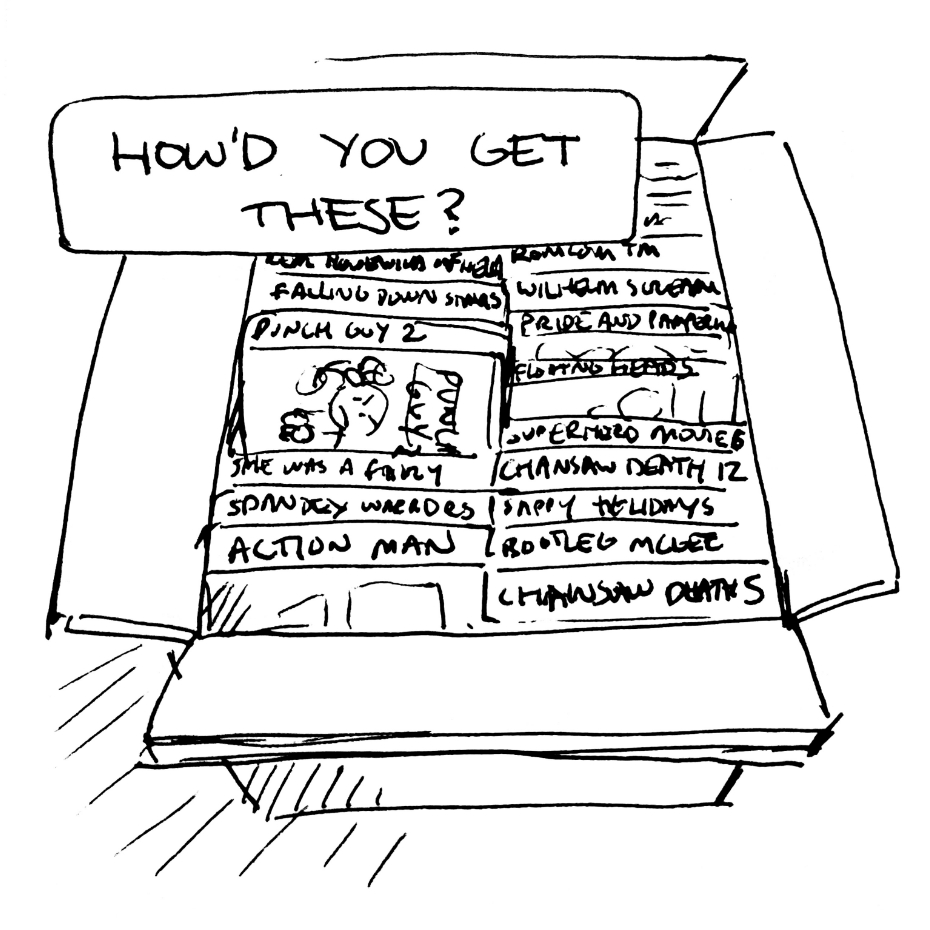 HOW'D YOU GET
THESE?
FALLING DOWN STAIRS
PUNCH GUY 2
PUNCH
GUY 2
SHE WAS A FAIRY
SPANDEX WARRIORS
ACTION MAN
ROMCOM TM
WILHELM SCREAM
PRIDE AND
FLOATING HEADS
SUPERHERO MOVIE 6
CHANSAW DEATH 12
SAPPY HOLIDAYS
BOOTLEG MCGEE
CHAINSAW DEATH 5